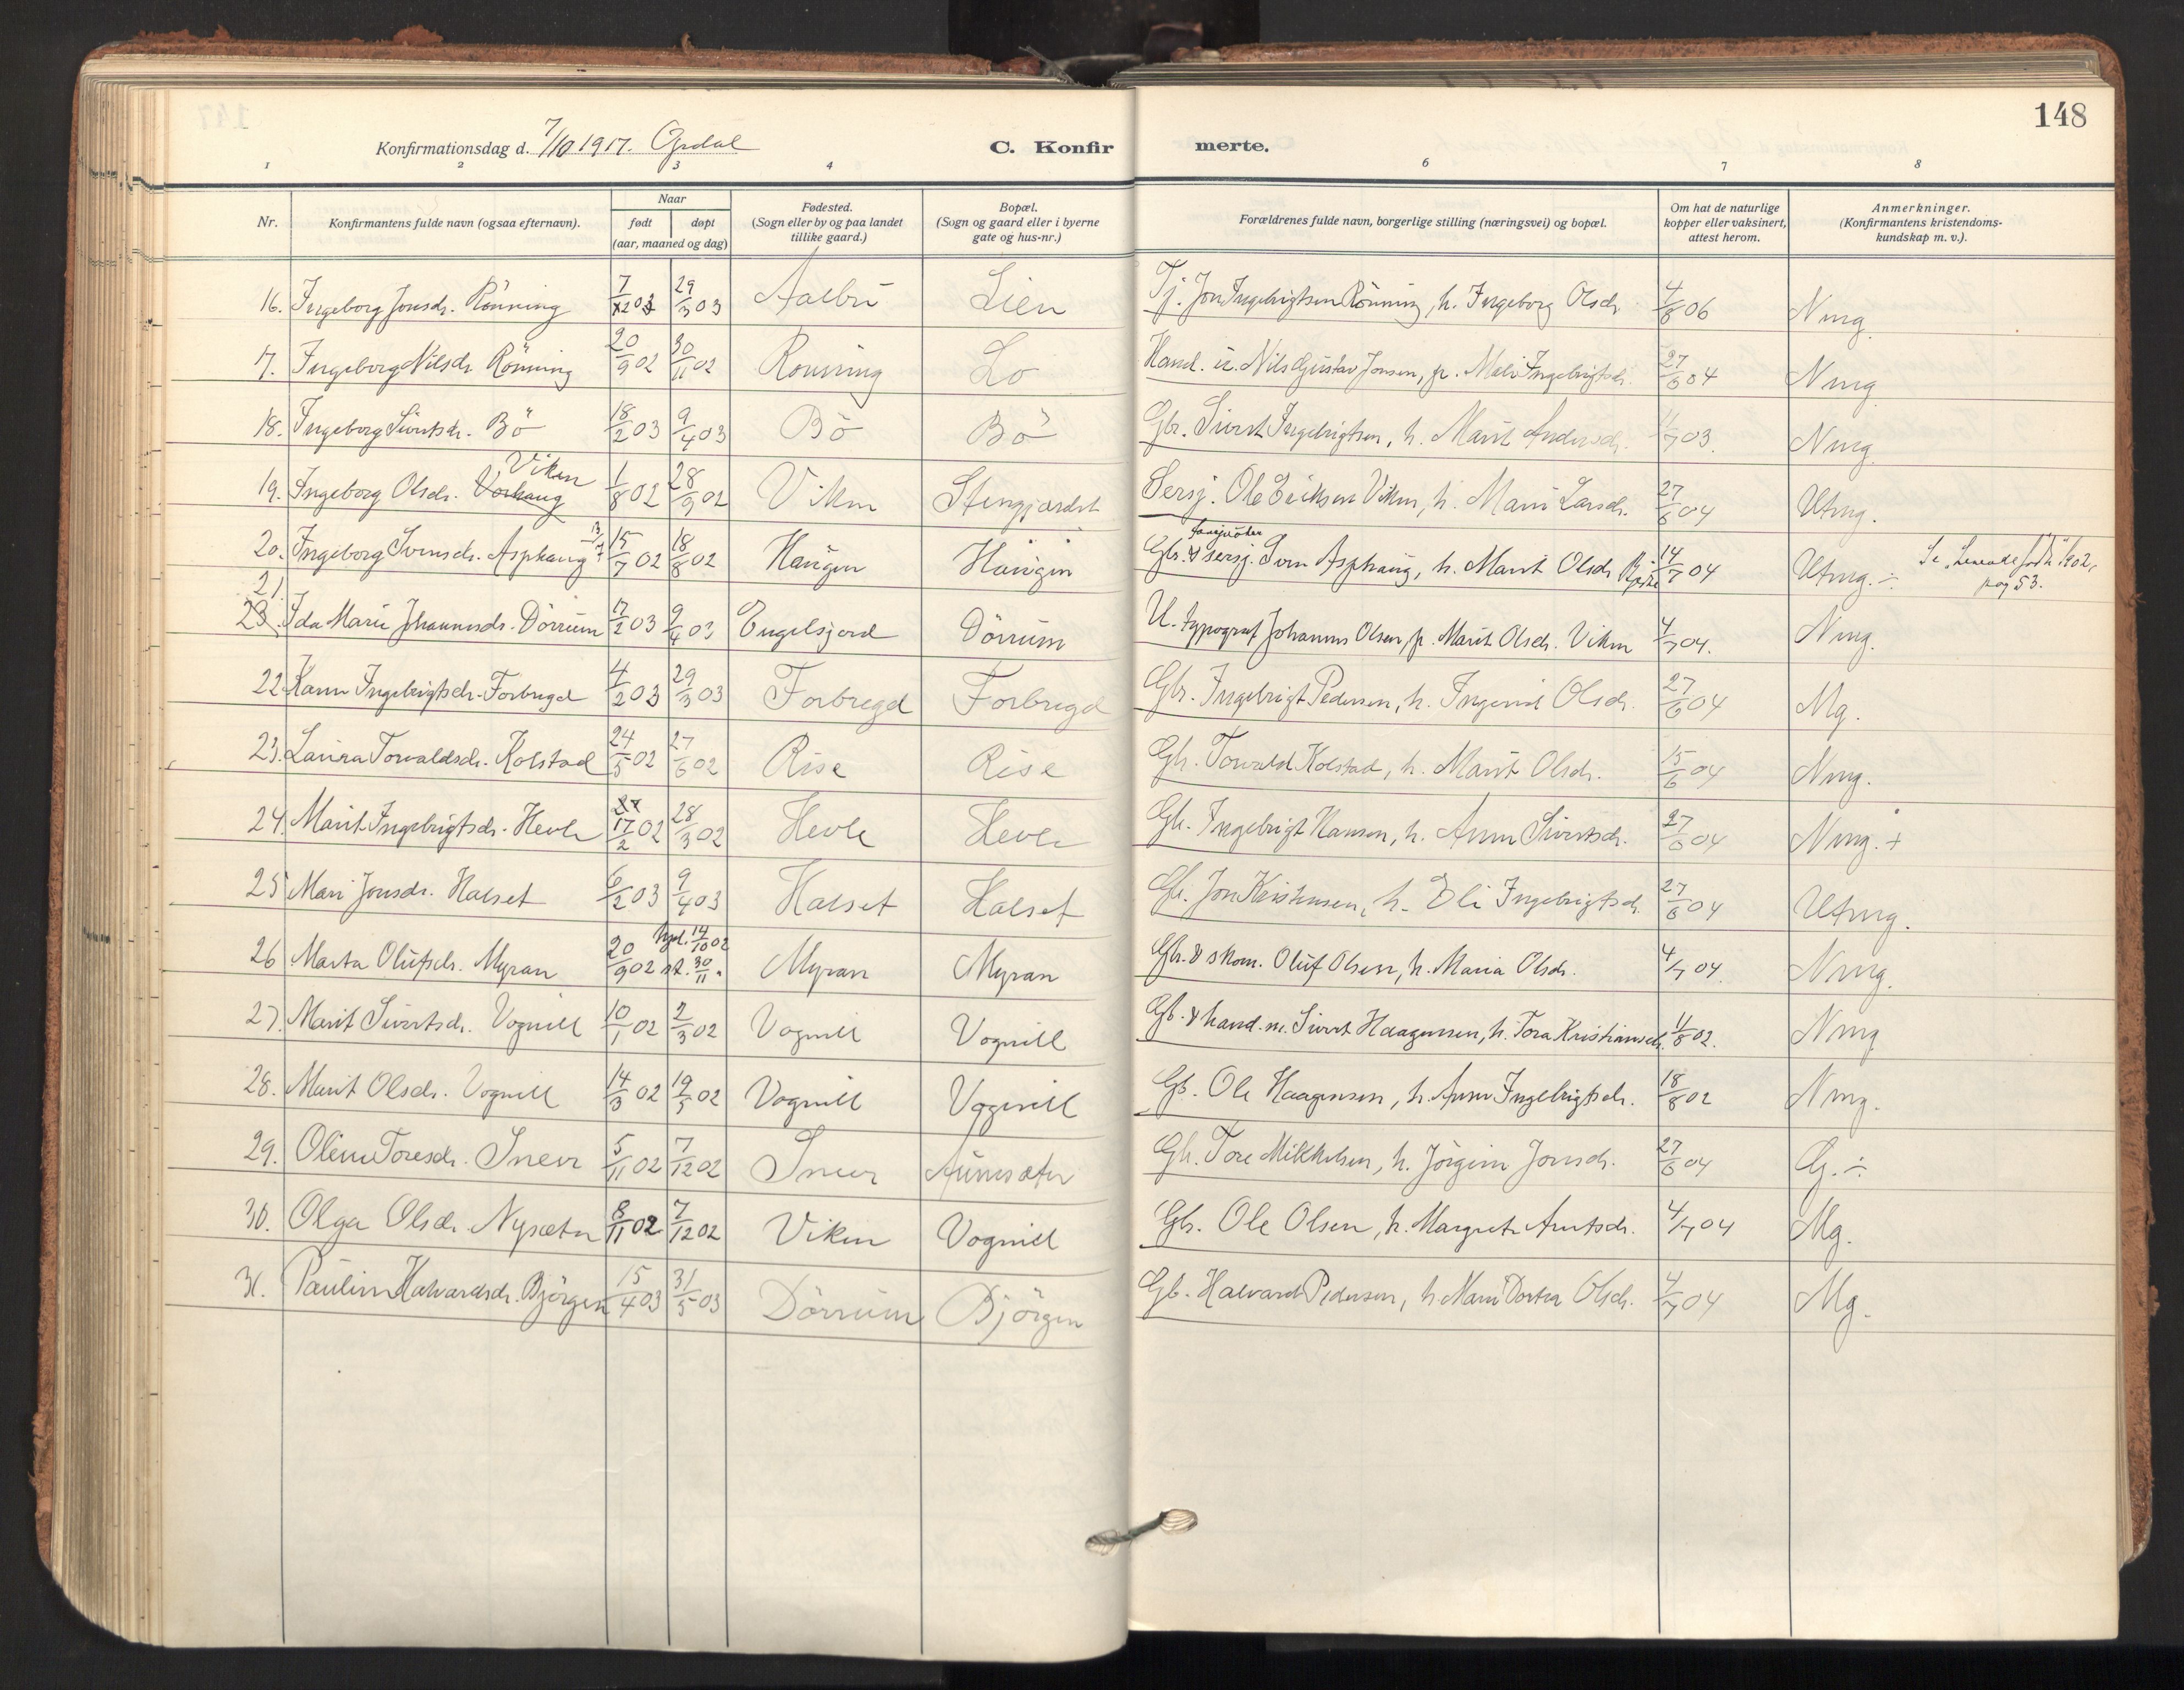 148
Konfirmationsdag d. 7/10 1917. Opdal
C. Konfirmerte.
1 2 3 4 6 7 8
Nr. Konfirmantens fulde navn (ogsaa efternavn). Naar født døpt (aar, maaned og dag) Fødested. (Sogn eller by og paa landet tillike gaard.) Bopæl. (Sogn og gaard eller i byerne gate og hus-nr.) Forældrenes fulde navn, borgerlige stilling (næringsvei) og bopæl. Om hat de naturlige kopper eller vaksinert, attest herom. Anmerkninger. (Konfirmantens kristendoms-kundskap m. v.).
16. Ingeborg Jonsdr. Rönning 7/12 03 29/3 03 Aalbu Lien Tj. Jon Ingebrigtsen Rönning, h. Ingeborg Olsdr. 4/8 06 Nmg.
17. Ingeborg Nilsdr. Rönning 20/9 02 30/11 02 Rönning Lo Hand. Nils Gustav Jonsen, p. Mali Ingebrigtsdr. 27/6 04 Nmg
18. Ingeborg Sivertsdr. Bö 18/2 03 9/4 03 Bö Bö Gbr. Sivert Ingebrigtsen, h. Marit Andersdr. 11/7 03. Nmg.
19. Ingeborg Olsdr. Vorhaug Viken 1/8 02 28/9 02 Viken Stengjærdet Sersj. Ole Eriksen Viken, h. Mari Larsdr. 27/6 04 Utmg.
20. Ingeborg Svensdr. Asphaug 15/7 02 18/8 02 Haugen Haugen Gbr. & sersj. Sven Asphaug, h. Marit Olsdr. 14/7 04 Utmg. ÷ Se "Levende fødte" 1902, pag 53.
21. 23. Ida Marie Johannesdr. Dörrum 17/2 03 9/4 03 Engelsjord Dörrum U. typograf Johannes Olsen, p. Marit Olsdr. Viken 4/7 04. Nmg.
22. Karen Ingebrigtsdr. Forbregd 4/2 03 29/3 03 Forbregd Forbregd Gbr. Ingebrigt Pedersen, h. Ingerid Olsdr. 27/6 04 Mg.
23. Laura Torvaldsdr. Kolstad 24/5 02 27/6 02 Rise Rise Gbr. Torvald Kolstad, h. Marit Olsdr. 15/6 04 Nmg.
24. Marit Ingebrigtsdr. Hevle 17/2 02 28/3 02 Hevle Hevle Gbr. Ingebrigt Hansen, h. Anne Sivertsdr. 27/6 04 Nmg. +
25 Mari Jonsdr. Halset 6/2 03 9/4 03 Halset Halset Gbr. Jon Kristensen, h. Eli Ingebrigtsdr. 27/6 04 Utmg.
26 Marta Olufsdr. Myran 20/9 02 hjd. 14/10 02 st. 30/11 " Myran Myran Gbr. & skom. Oluf Olsen, h. Maria Olsdr. 4/7 04. Nmg.
27. Marit Sivertsdr. Vognill 10/1 02 2/3 02 Vognill Vognill Gb. & hand.m. Sivert Haagensen, h. Tora Kristiansdr. 11/8 02. Nmg
28. Marit Olsdr. Vognill 14/3 02 19/5 02 Vognill Vognill Gb. Ole Haagensen, h. Anne Ingebrigtsdr. 18/8 02 Nmg.
29. Oline Toresdr. Snevr 5/11 02 7/12 02 Snevr Aunesæter Gb. Tore Mikkelsen, h. Jörgine Jonsdr. 27/6 04 G. ÷
30. Olga Olsdr. Nysæter 8/11 02 7/12 02 Viken Vognill Gb. Ole Olsen, h. Margrete Arntsdr. 4/7 04 Mg.
31. Pauline Halvardsdr. Bjørgen 15/4 03 31/5 03 Dörrum Bjørgen Gb. Halvard Pedersen, h. Mari Dortea Olsdr. 4/7 04 Mg.